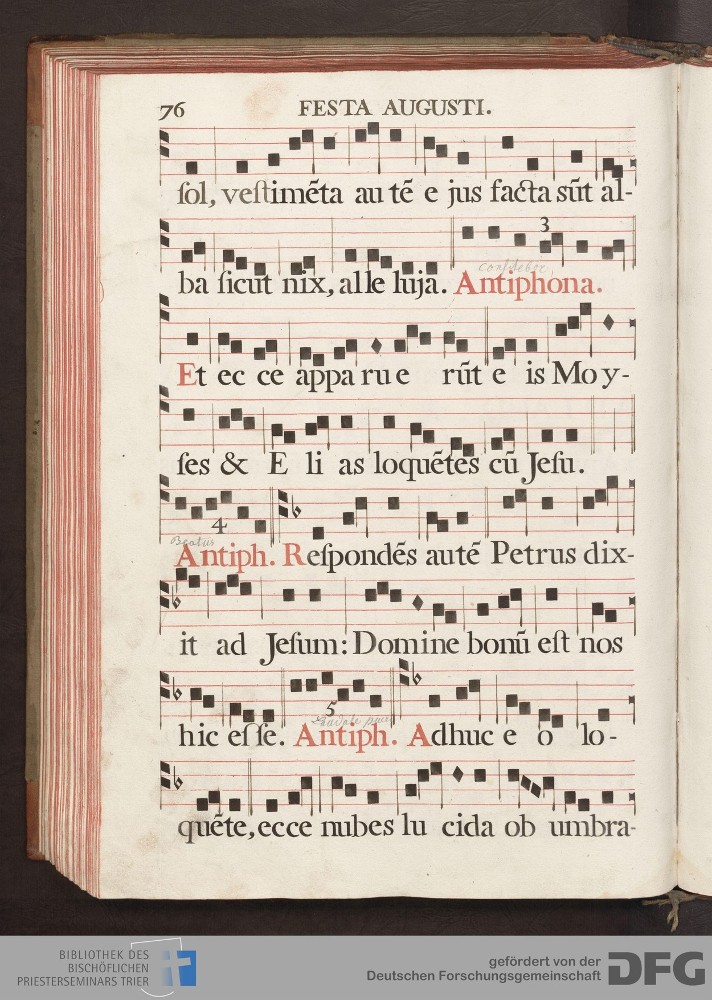 76 FESTA AUGUSTI.
ſol, veſtimẽta au tẽ e jus facta sũt al-
3
ba ſicut nix, alle luja. Antiphona.
Et ec ce appa ru e rũt e is Mo y-
ſes & E li as loquẽtes cũ Jeſu.
4
Beatus
Antiph. Reſpondẽs autẽ Petrus dix-
it ad Jeſum: Domine bonũ eſt nos
5
hic eſſe. Antiph. Adhuc e o lo-
quẽte, ecce nubes lu cida ob umbra-
BIBLIOTHEK DES
BISCHÖFLICHEN
PRIESTERSEMINARS TRIER
gefördert von der
Deutschen Forschungsgemeinschaft DFG